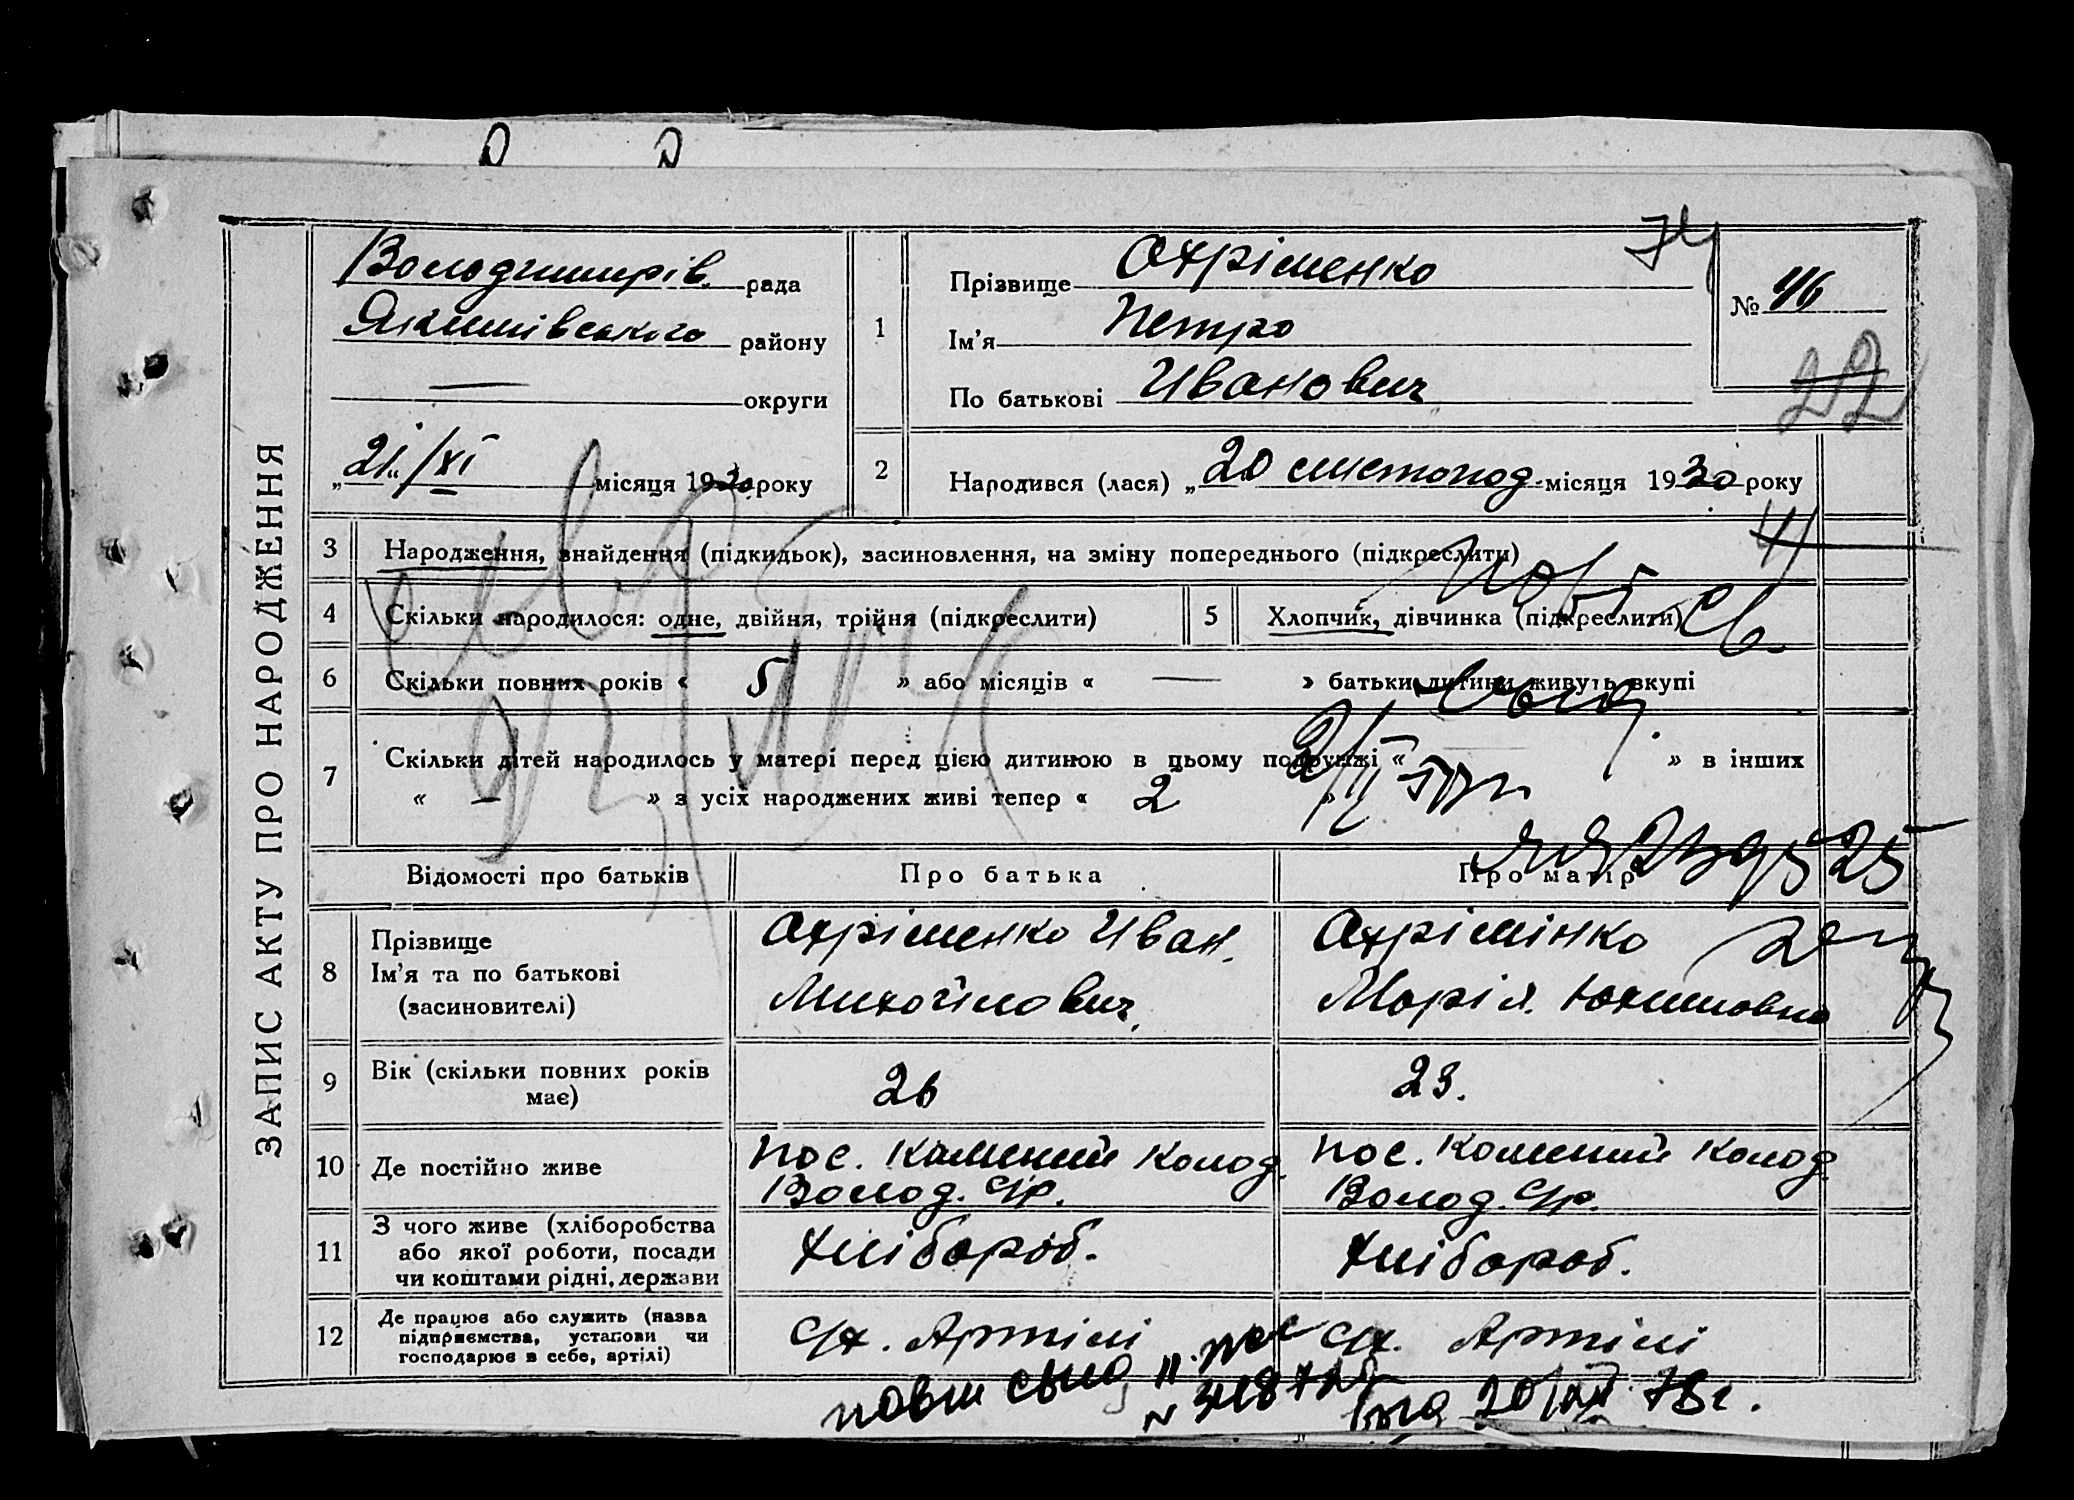 ЗАПИС АКТУ ПРО НАРОДЖЕННЯ
Володимирів. рада
Якимівського району
— округи
„21“/XI місяця 1930 року
1
Прізвище Охріменко
Ім'я Петро
По батькові Иванович
№ 46
22
2
Народився (лася) „20 листопод. місяця 1930 року
3 Народження, знайдення (підкидьок), засиновлення, на зміну попереднього (підкреслити)
4 Скільки народилося: одне, двійня, трійня (підкреслити)
5 Хлопчик, дівчинка (підкреслити)
6 Скільки повних років « 5 » або місяців « — » батьки дитини живуть вкупі
7 Скільки дітей народилось у матері перед цією дитиною в цьому подружжі « » в інших
« — » з усіх народжених живі тепер « 2 »
Відомості про батьків Про батька Про матір
8 Прізвище
Ім'я та по батькові
(засиновителі)
Охріменко Иван.
Михойлович.
Охрімінко
Марія. Юхимовна
9 Вік (скільки повних років має)
26
23.
10 Де постійно живе
пос. Камений Колод.
Волод. С/р.
пос. Камений Колод.
Волод. С/р.
11 З чого живе (хліборобства
або якої роботи, посади
чи коштами рідні, держави
Хлібороб.
Хлібороб.
12 Де працює або служить (назва
підприємства, установи чи
господарює в себе, артілі)
С/х. Артілі
С/х. Артілі
78г.